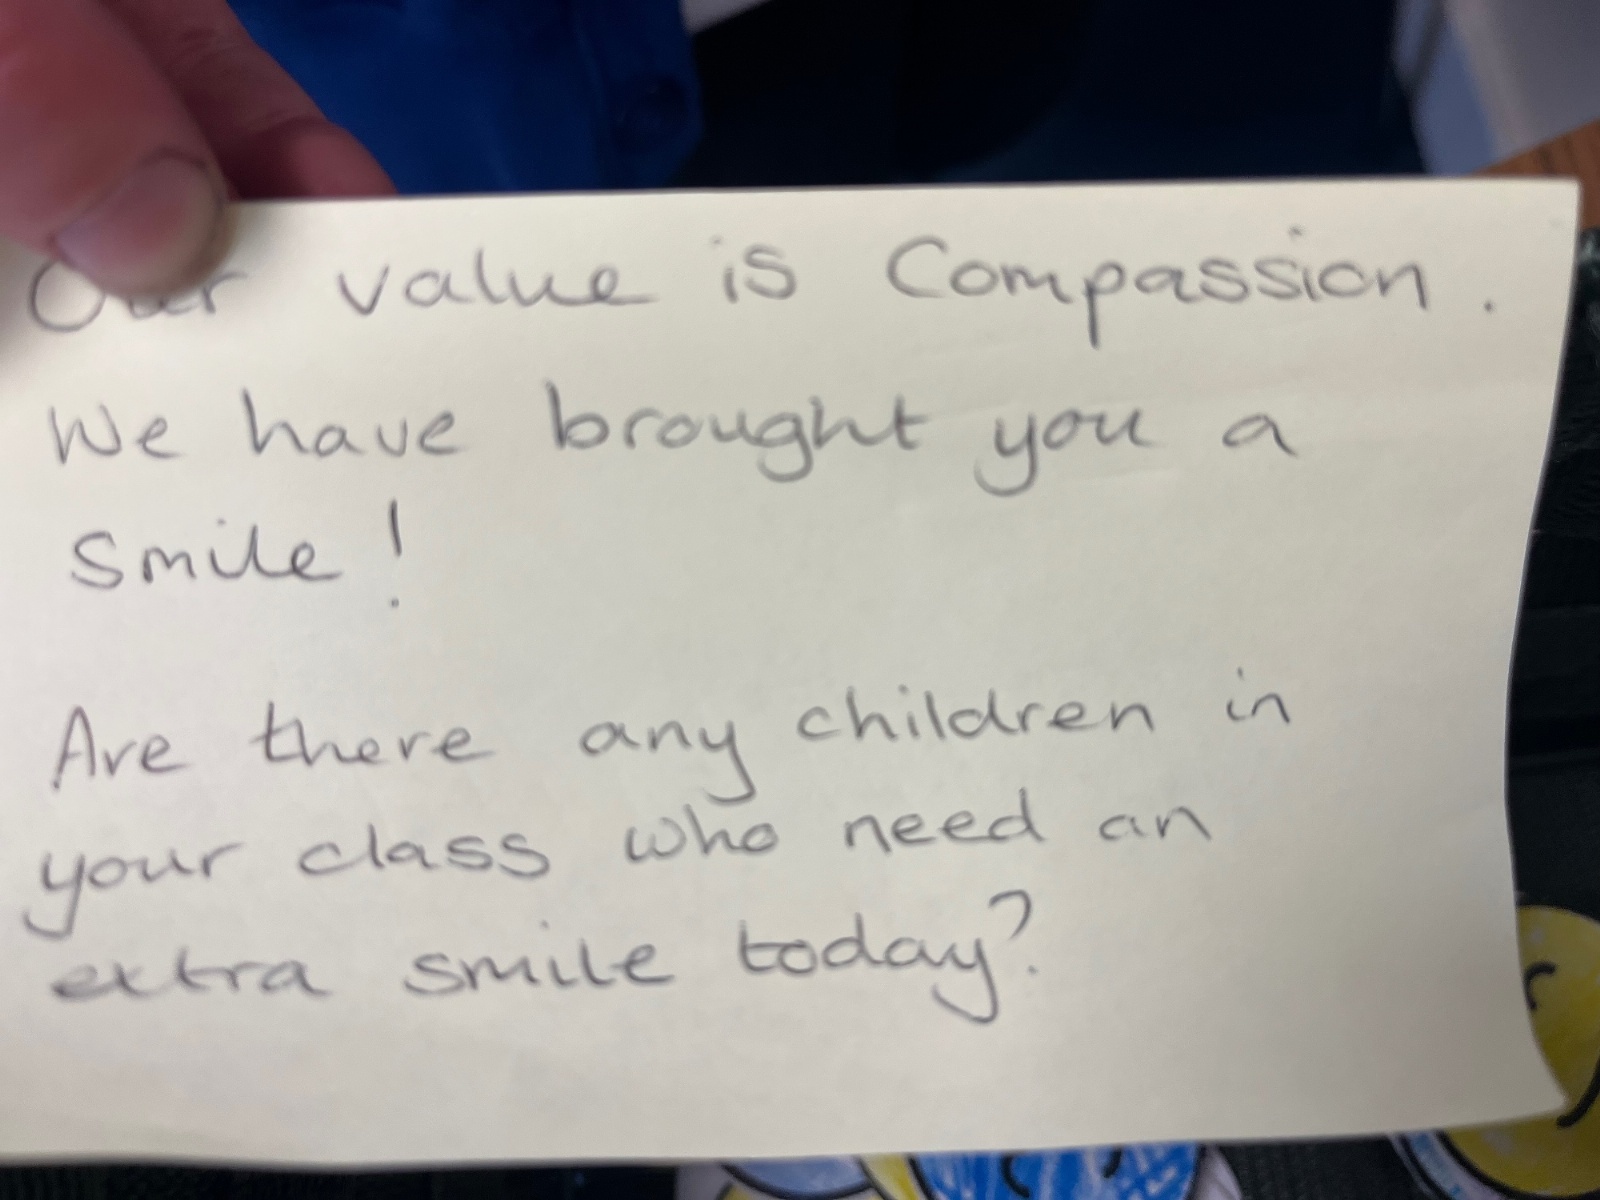 Our value is Compassion.
We have brought you a
smile!
Are there any children in
your class who need an
extra smile today?